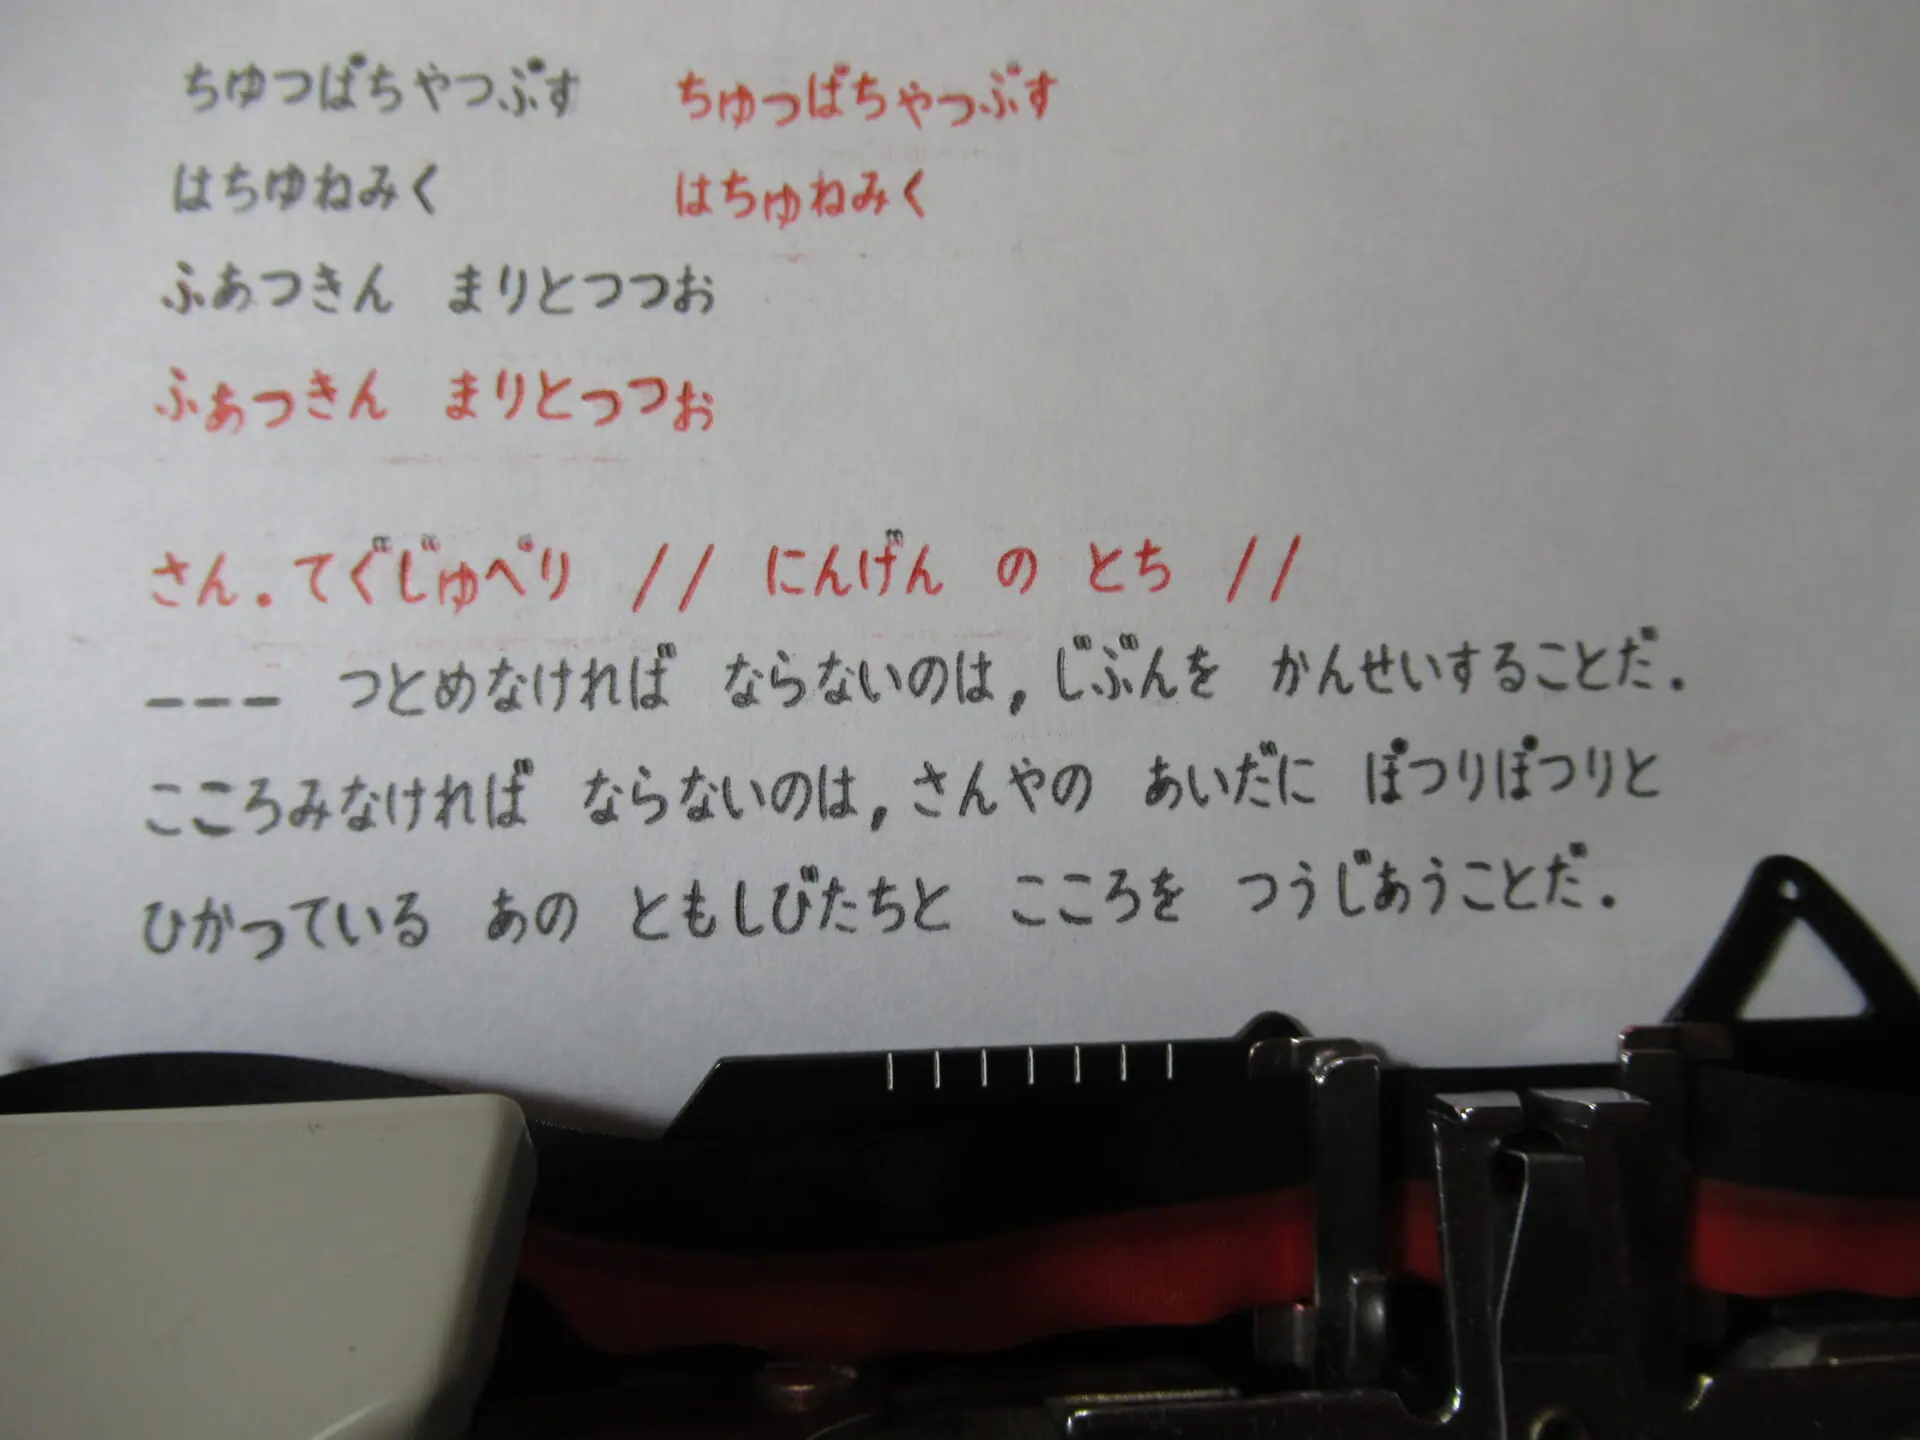 ちゆつぱちやつぷす　ちゅっぱちゃっぷす
はちゆねみく　はちゅねみく
ふあつきん　まりとつつお
ふぁっきん　まりとっつぉ
さん.てぐじゅぺり　//　にんげん　の　とち　//
---　つとめなければ　ならないのは,じぶんを　かんせいすることだ.
こころみなければ　ならないのは,さんやの　あいだに　ぽつりぽつりと
ひかっている　あの　ともしびたちと　こころを　つうじあうことだ.